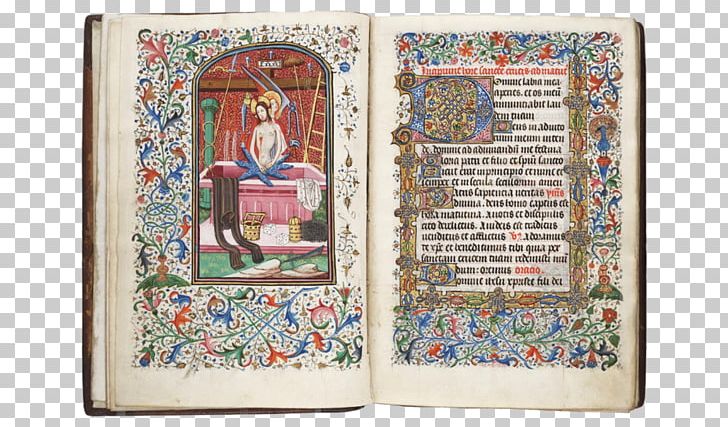 inri
Incipiunt hore sancte crucis ad matut
Domine labia mea
aperies. et os meū
annunciabit lau
dem tuam.
Deus in adiuto
riū meū intende.
Domine ad adiuuandū me festina
Gloria patri et filio et spiū sancto
Sicut erat in principio et nunc et
semper et in secula seculorum amen
Patris sapientia veritas
diuina. deus homo captus est
hora matutina. Anotis et discipulis
cito derelictus. Aiudeis est traditus
venditus et afflictus V̷. Adoramus
te xp̄e et benedicimus tibi quia per
sanctam crucem tuam redemisti mū
dum. Oremus oracio.
Domine ih̄u xpriste fili dei